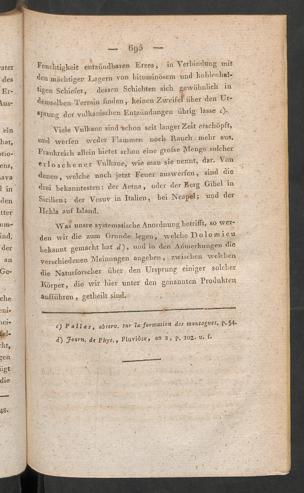 — 695 —
Feuchtigkeit entzündbaren Erzes, in Verbindung mit
den mächtigen Lagern von bituminösem und kohlenhal-
tigen Schiefer, dessen Schichten sich gewöhnlich in
demselben Terrain finden, keinen Zweifel über den Ur-
sprung der vulkanischen Entzündungen übrig lasse c).
Viele Vulkane sind schon seit langer Zeit erschöpft,
und werfen weder Flammen noch Rauch mehr aus.
Frankreich allein bietet schon eine große Menge solcher
erloschener Vulkane, wie man sie nennt, dar. Von
denen, welche noch jetzt Feuer auswerfen, sind die
drei bekanntesten: der Aetna, oder der Berg Gibel in
Sicilien; der Vesuv in Italien, bei Neapel; und der
Hekla auf Island.
Was unsre systematische Anordnung betrifft, so wer-
den wir die zum Grunde legen, welche Dolomieu
bekannt gemacht hat d), und in den Anmerkungen die
verschiedenen Meinungen angeben, zwischen welchen
die Naturforscher über den Ursprung einiger solcher
Körper, die wir hier unter den genannten Produkten
aufführen, getheilt sind.
c) Pallas, observ. sur la formation des montagnes, p. 54.
d) Journ. de Phys., Pluviôse, an 2, p. 102. u. f.